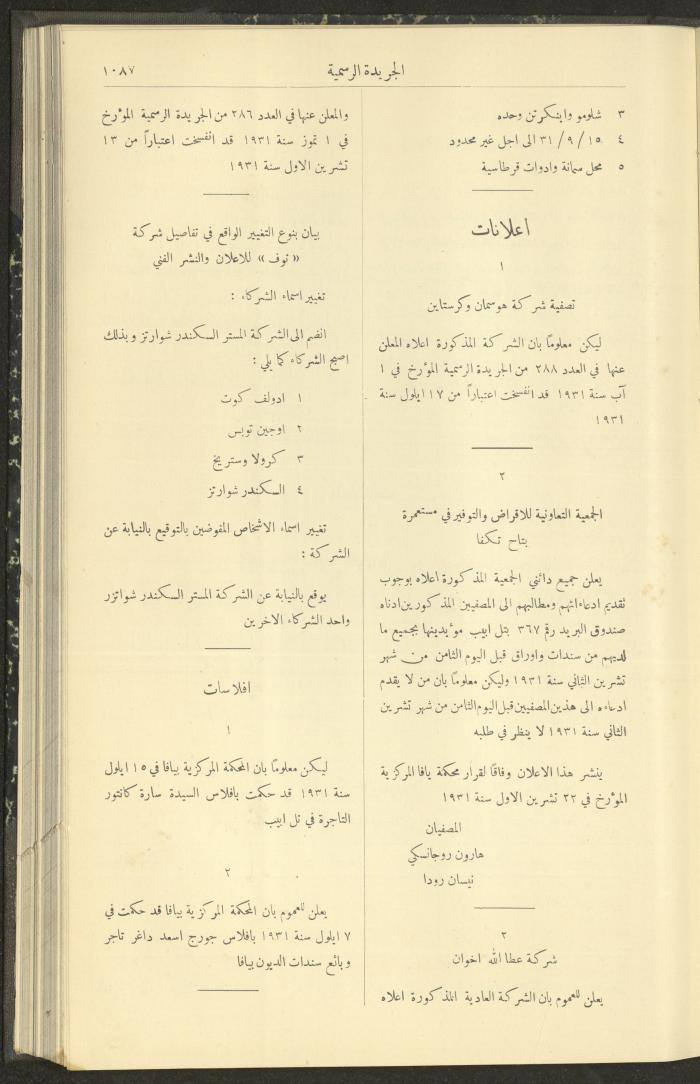 الجريدة الرسمية
١٠٨٧
٣ شلومو واينكرتن وحده
٤ ١٥ / ٩ / ٣١ الى اجل غير محدود
٥ محل سمانة وادوات قرطاسية
اعلانات
١
تصفية شركة هوسمان وكرستاين
ليكن معلومًا بان الشركة المذكورة اعلاه المعلن
عنها في العدد ٢٨٨ من الجريدة الرسمية المؤرخ في ١
آب سنة ١٩٣١ قد انفسخت اعتباراً من ١٧ ايلول سنة
١٩٣١
٢
الجمعية التعاونية للاقراض والتوفير في مستعمرة
بتاح تكفا
يعلن جميع دائني الجمعية المذكورة اعلاه بوجوب
تقديم ادعاءاتهم ومطاليبهم الى المصفيين المذكورين ادناه
صندوق البريد رقم ٣٦٧ بتل ابيب مؤيدينها بجميع ما
لديهم من سندات واوراق قبل اليوم الثامن من شهر
تشرين الثاني سنة ١٩٣١ وليكن معلومًا بان من لا يقدم
ادعاءه الى هذين المصفيين قبل اليوم الثامن من شهر تشرين
الثاني سنة ١٩٣١ لا ينظر في طلبه
ينشر هذا الاعلان وفاقًا لقرار محكمة يافا المركزية
المؤرخ في ٢٢ تشرين الاول سنة ١٩٣١
المصفيان
هارون روجانسكي
نيسان رودا
٣
شركة عطا الله اخوان
يعلن للعموم بان الشركة العادية المذكورة اعلاه
والمعلن عنها في العدد ٢٨٦ من الجريدة الرسمية المؤرخ
في ١ تموز سنة ١٩٣١ قد انفسخت اعتباراً من ١٣
تشرين الاول سنة ١٩٣١
بيان بنوع التغيير الواقع في تفاصيل شركة
« توف » للاعلان والنشر الفني
تغيير اسماء الشركاء :
انضم الى الشركة المستر السكندر شوارتز وبذلك
اصبح الشركاء كما يلي :
١ ادولف كوت
٢ اوجين توبس
٣ كرولا وستريخ
٤ السكندر شوارتز
تغيير اسماء الاشخاص المفوضين بالتوقيع بالنيابة عن
الشركة :
يوقع بالنيابة عن الشركة المستر السكندر شواتزر
واحد الشركاء الاخرين
افلاسات
١
ليكن معلومًا بان المحكمة المركزية بيافا في ١٥ ايلول
سنة ١٩٣١ قد حكمت بافلاس السيدة سارة كانتور
التاجرة في تل ابيب
٢
يعلن للعموم بان المحكمة المركزية بيافا قد حكمت في
٧ ايلول سنة ١٩٣١ بافلاس جورج اسعد داغر تاجر
وبائع سندات الديون بيافا